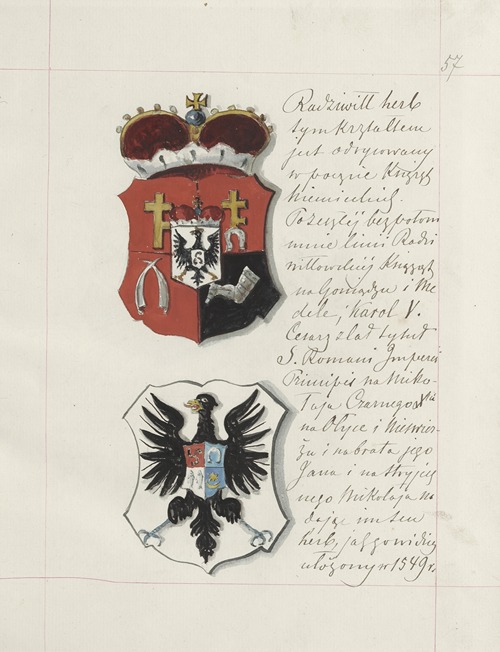 57
Radziwiłł herb
tym kształtem
jest odrysowany
w poczcie Książąt
Niemieckich.
Po zeszłéj bezpotom
nie linii Radzi
wiłłowskiéj Książąt
na Goniądzu i Me
dele, Karol V.
Cesarz zlał tytuł
S. Romani Imperii
Principis na Miko-
łaja Czarnego Xcia
na Ołyce i Nieświe-
żu i na brata jego
Jana i na stryjecz
nego Mikołaja na
dając im ten
herb, jak go widzisz
ułożony w 1549 r.